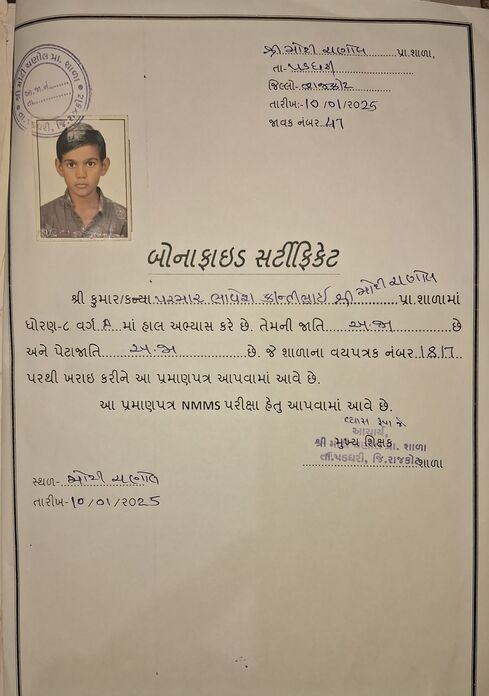 શ્રી મોટી ચણોલ પ્રા.શાળા,
તા-પડધરી
જિલ્લો-રાજકોટ
તારીખ:-10/01/2025
જાવક નંબર.47
શ્રી મોટી ચણોલ પ્રા. શાળા
જા.જા.નં.
તા.
તા. પડધરી, જિ.રાજકોટ
બોનાફાઇડ સર્ટીફિકેટ
શ્રી કુમાર/કન્યા પરમાર ભાવેશ કાન્તીભાઈ શ્રી મોટી ચણોલ પ્રા.શાળામાં
ધોરણ-૮ વર્ગ A માં હાલ અભ્યાસ કરે છે. તેમની જાતિ અ.જા છે
અને પેટાજાતિ અ.જા છે. જે શાળાના વયપત્રક નંબર 1817
પરથી ખરાઇ કરીને આ પ્રમાણપત્ર આપવામાં આવે છે.
આ પ્રમાણપત્ર NMMS પરીક્ષા હેતુ આપવામાં આવે છે.
વ્યાસ રૂપા જે
આચાર્ય,
મુખ્ય શિક્ષક
શ્રી મોટી ચણોલ પ્રા. શાળા
તા.પડધરી, જિ.રાજકોટ
શાળા
સ્થળ- મોટી ચણોલ
તારીખ-10/01/2025